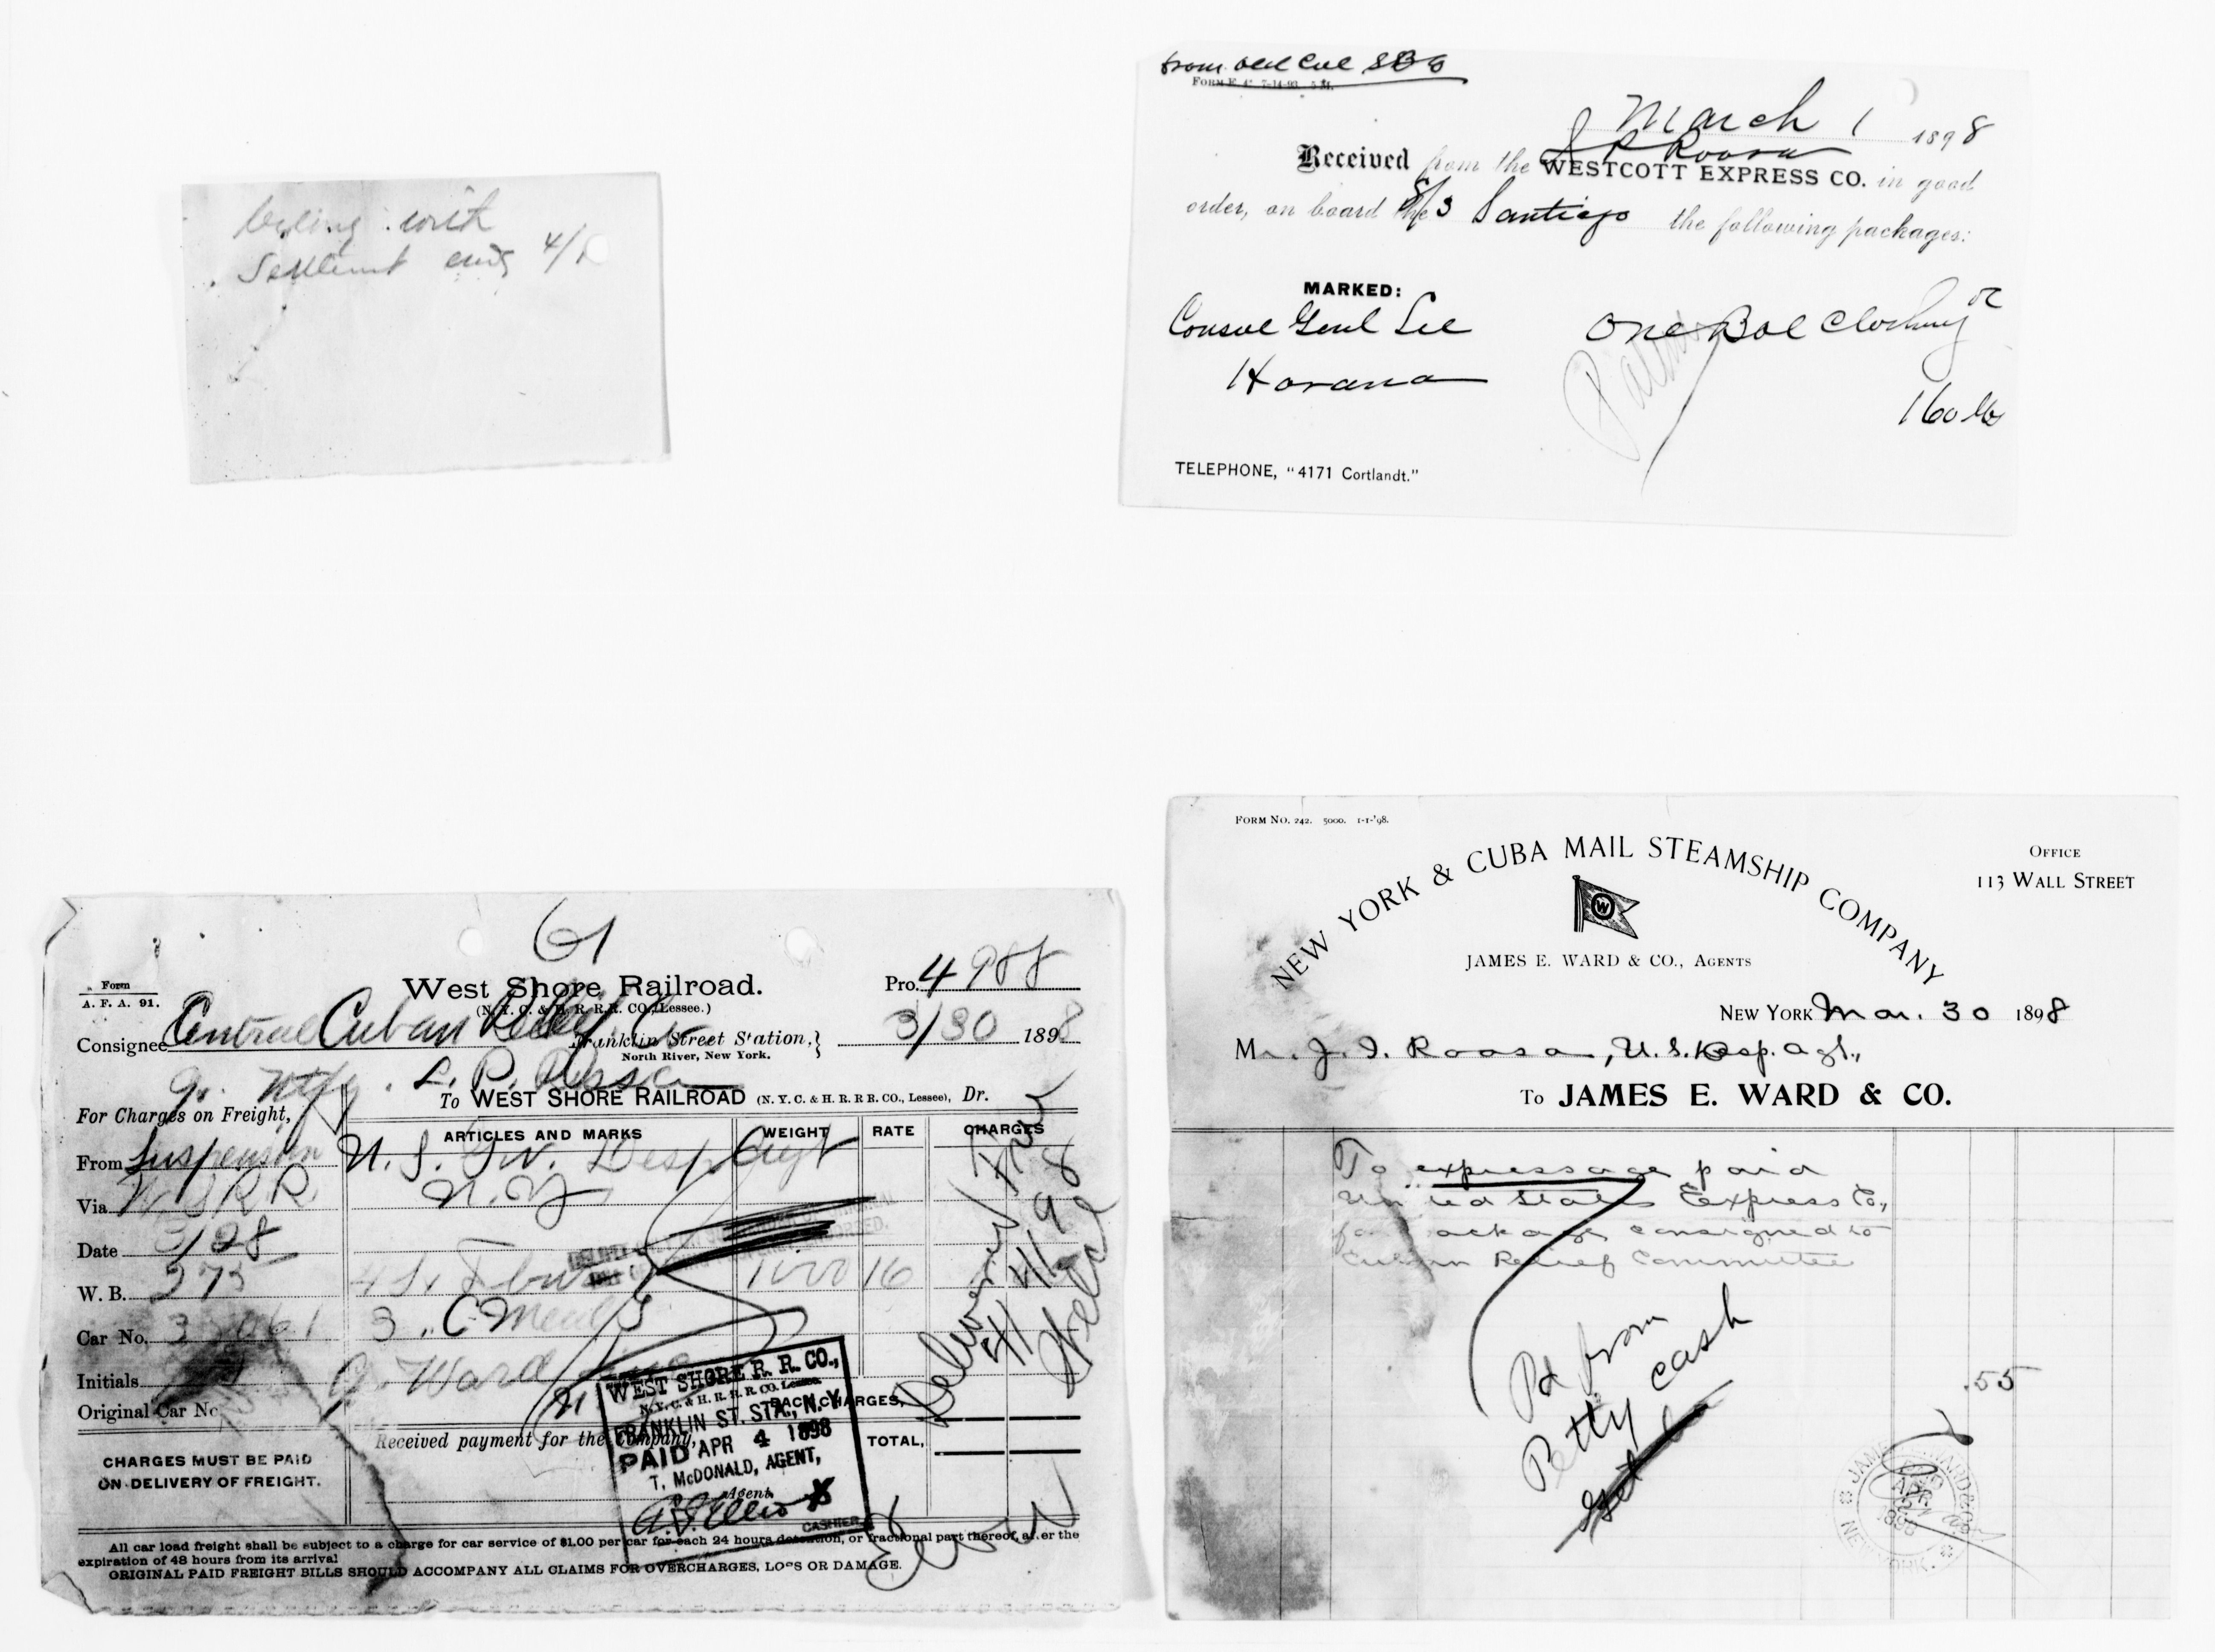 with
4/
from
FORM E. 4. 7-14-93. 5 M.
March 1 1898
Received from the WESTCOTT EXPRESS CO. in good
order, on board the S/S Santiago the following packages:
MARKED:
Consul Genl Lee
One Bal Clothing
Havana
160 lbs
TELEPHONE, "4171 Cortlandt."
61
Form
A. F. A. 91.
West Shore Railroad.
(N. Y. C. & H. R. R.R. CO., Lessee.)
Pro. 4988
Consignee Central Cuban Relief
Franklin Street Station,
North River, New York.
3/30 1898
For Charges on Freight,
To WEST SHORE RAILROAD (N. Y. C. & H. R. R R. CO., Lessee), Dr.
ARTICLES AND MARKS WEIGHT RATE CHARGES
From Suspension U. S. Gov. Desp Agt
Via W S R R. N. Y
Date 3/28
W. B. 375 16
Car No. 3 C Meal
Initials Ward
Original Car No.
BACK CHARGES,
Received payment for the Company,
TOTAL,
CHARGES MUST BE PAID
ON DELIVERY OF FREIGHT.
Agent.
WEST SHORE R. R. CO.,
N. Y. C. & H. R. R. R. CO. Lessee.
FRANKLIN ST. STA., N. Y.
PAID APR 4 1898
T. McDONALD, AGENT,
CASHIER
Delivered
4/1 98
All car load freight shall be subject to a charge for car service of $1.00 per car for each 24 hours detention, or fractional part thereof, after the
expiration of 48 hours from its arrival
ORIGINAL PAID FREIGHT BILLS SHOULD ACCOMPANY ALL CLAIMS FOR OVERCHARGES, LOSS OR DAMAGE.
FORM NO. 242. 5000. 1-1-'98.
NEW YORK & CUBA MAIL STEAMSHIP COMPANY
W
OFFICE
113 WALL STREET
JAMES E. WARD & CO., AGENTS
NEW YORK Mar. 30 1898
Mr. J. I. Roosa, U. S. Desp. Agt.,
To JAMES E. WARD & CO.
To expressage paid
United States Express Co.,
for package consigned to
Cuban Relief Committee
.55
Pd from
Petty cash
JAMES E. WARD & CO.
APR
1898
NEW YORK.